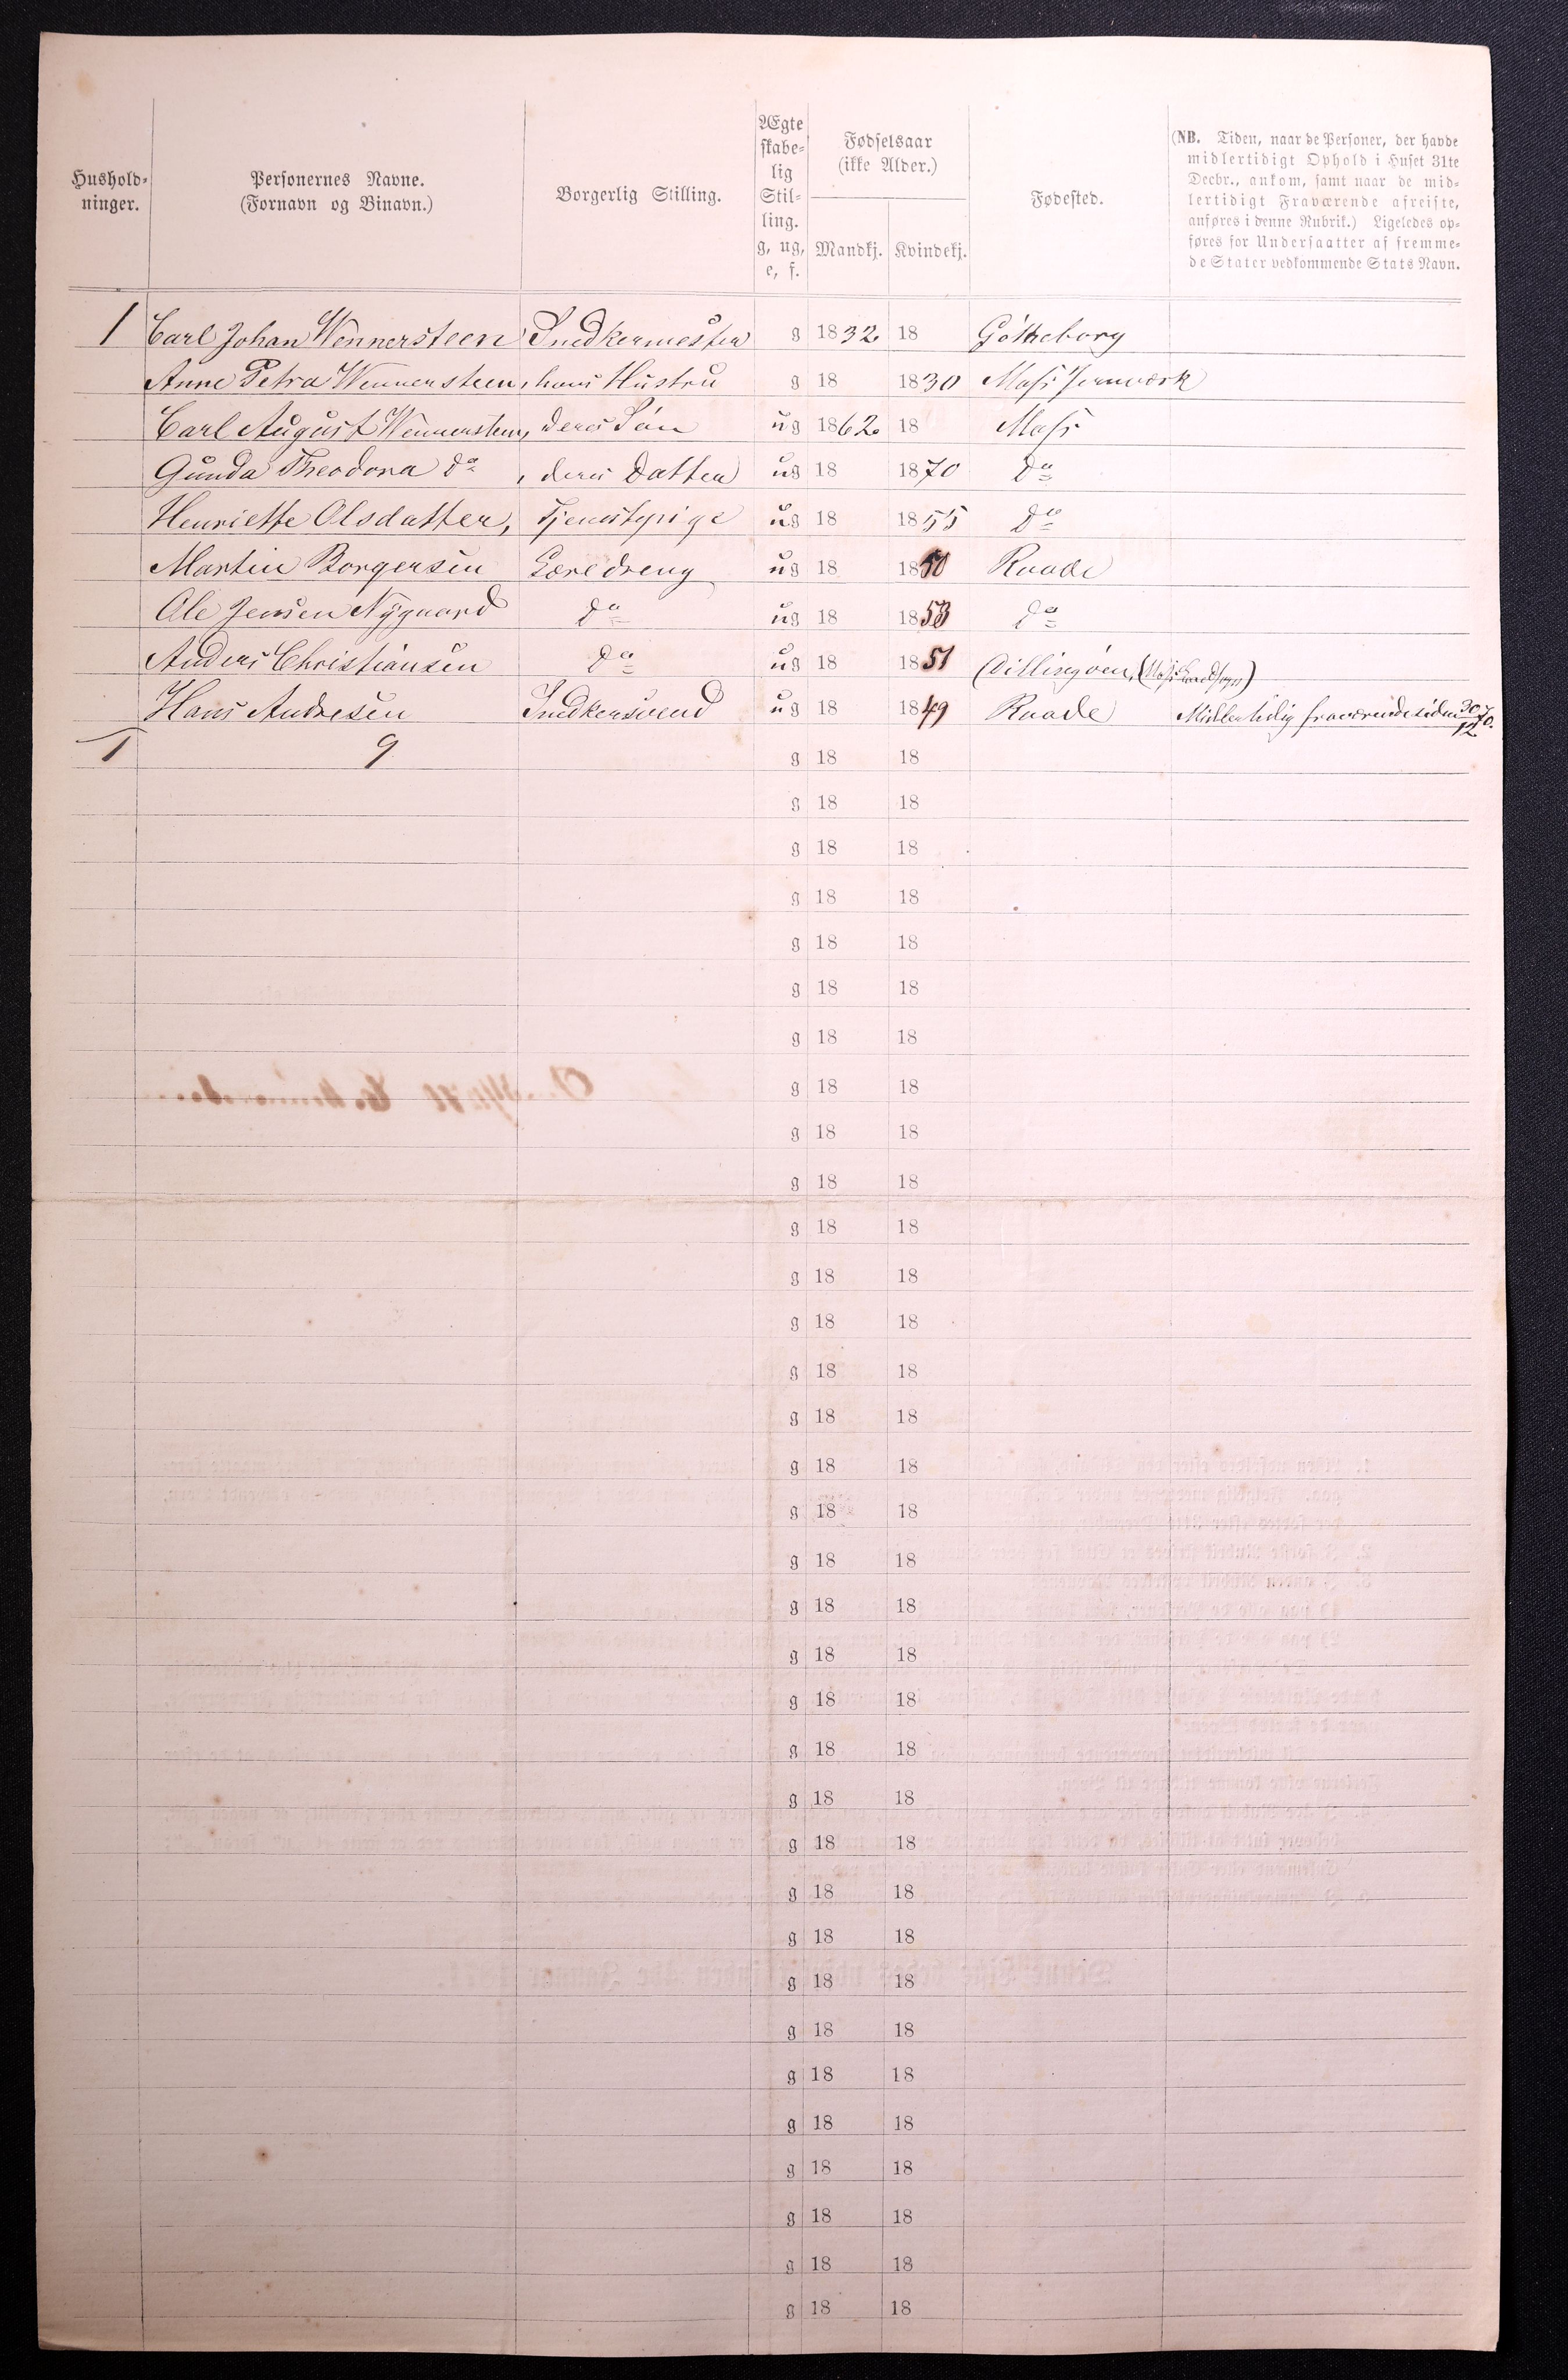 Hushold-
ninger.
Personernes Navne.
(Fornavn og Binavn.)
Borgerlig Stilling.
Ægte
skabe-
lig
Stil-
ling.
g, ug,
e, f.
Fødselsaar
(ikke Alder.)
Mandkj. Kvindekj.
Fødested.
(NB. Tiden, naar de Personer, der havde
midlertidigt Ophold i Huset 31te
Decbr., ankom, samt naar de mid-
lertidigt Fraværende afreiste,
anføres i denne Rubrik.) Ligeledes op-
føres for Undersaatter af fremme-
de Stater vedkommende Stats Navn.
1 Carl Johan Wennersteen Snedkermester g 1832 18 Götheborg
Anne Petra Wennersteen, hans Hustru g 18 1830 Moss Jernværk
Carl August Wennersteen, deres Søn ug 1862 18 Moss
Gunda Theodora do, deres Datter ug 18 1870 do
Henriette Olsdatter, Tjenestepige ug 18 1855 do
Martin Borgersen Læredreng ug 18 1850 Raade
Ole Jensen Nygaard do ug 18 1853 do
Anders Christiansen do ug 18 1851 Dillingøen, (Moss Landsogn)
Hans Andresen Snedkersvend ug 18 1849 Raade Midlertidig fraværende siden 30/12 70.
1 9 g 18 18
g 18 18
g 18 18
g 18 18
g 18 18
g 18 18
g 18 18
g 18 18
g 18 18
g 18 18
g 18 18
g 18 18
g 18 18
g 18 18
g 18 18
g 18 18
g 18 18
g 18 18
g 18 18
g 18 18
g 18 18
g 18 18
g 18 18
g 18 18
g 18 18
g 18 18
g 18 18
g 18 18
g 18 18
g 18 18
g 18 18
g 18 18
g 18 18
g 18 18